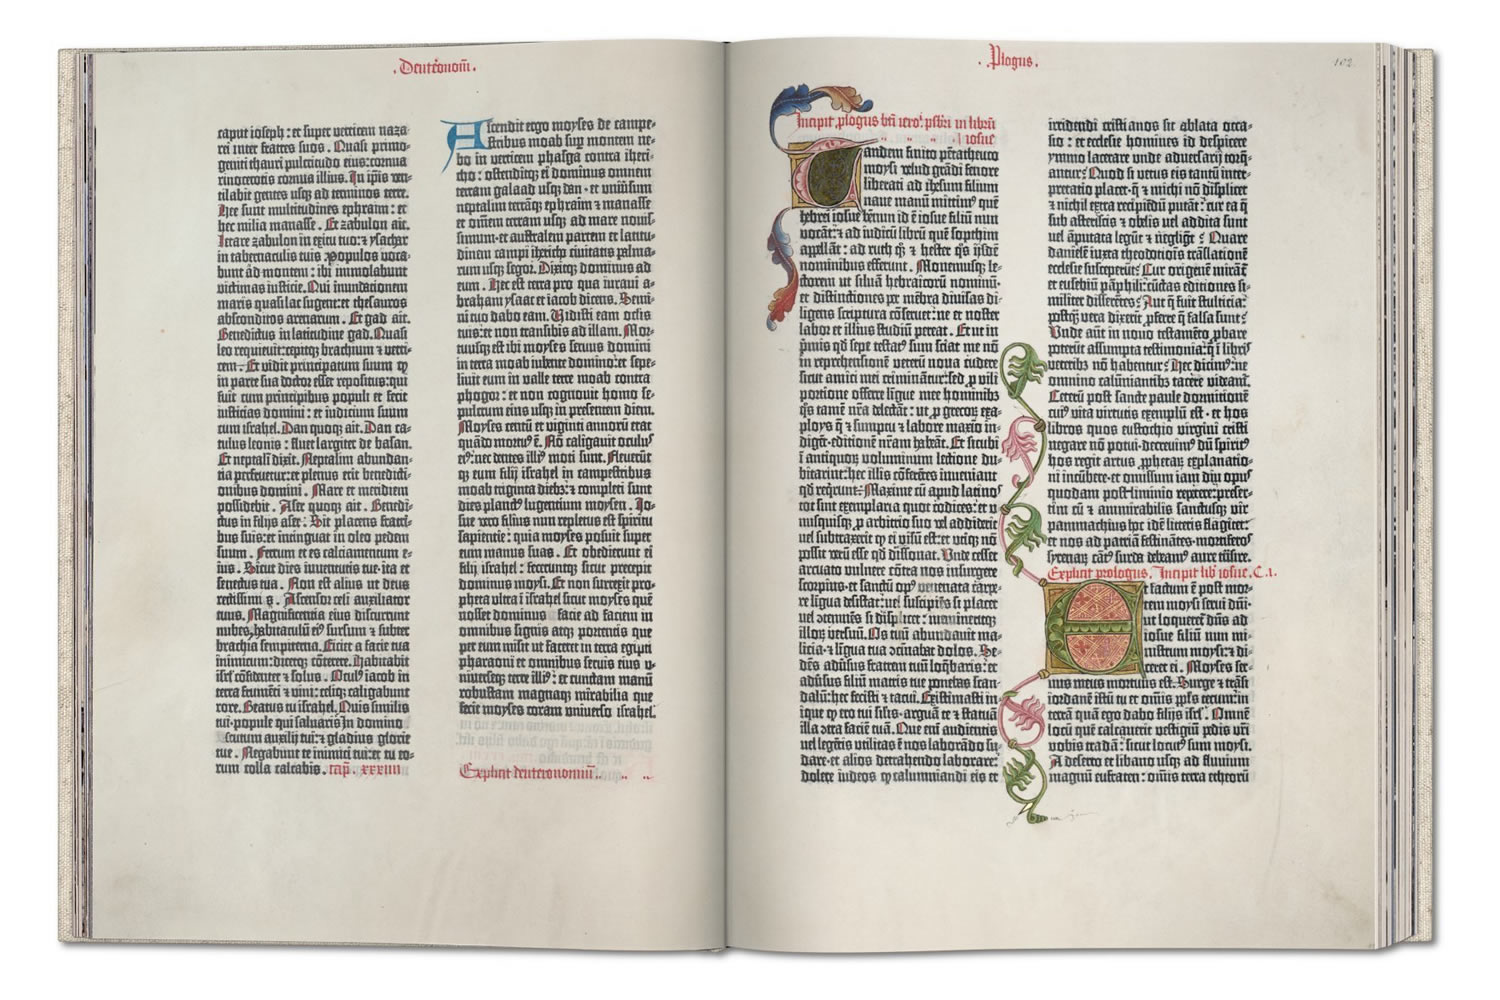 .Deuteronomī.
caput ioseph : et super verticem naza-
rei inter fratres suos . Quasi primo-
geniti thauri pulcritudo eius: cornua
rinocerotis cornua illius. In ip̄is ven-
tilabit gentes usq̢ ad terminos terre.
Hec sunt multitudines ephraim : et
hec milia manasse . Et zabulon ait.
Letare zabulon in exitu tuo: ⁊ ysachar
in tabernaculis tuis . Populos voca-
bunt ad montem : ibi immolabunt
victimas iusticie. Qui inundationem
maris quasi lac sugent: et thesauros
absconditos arenarum . Et gad ait.
Benedictus in latitudine gad. Quasi
leo requieuit: cepitq̢ brachium ⁊ verti-
cem . Et vidit principatum suum q̢
in parte sua doctor esset repositus: qui
fuit cum principibus populi et fecit
iusticias domini : et iudicium suum
cum israhel. Dan quoq̢ ait. Dan ca-
tulus leonis : fluet largiter de basan.
Et neptali dixit. Neptalim abundan-
tia perfruetur: et plenus erit benedicti-
onibus domini . Mare et meridiem
possidebit . Aser quoq̢ ait . Benedi-
ctus in filijs aser : Sit placens fratri-
bus suis: et intinguat in oleo pedem
suum . Ferrum et es calciamentum e-
ius. Sicut dies iuuentutis tue ita et
senectus tua . Non est alius ut deus
rectissimi . Ascensor celi auxiliator
tuus. Magnificentia eius discurrunt
nubes, habitaculū eiꝰ sursum ⁊ subter
brachia sempiterna. Eiciet a facie tua
inimicum: dicetq̢ cōterere. Habitabit
isrl̄ cōfidenter ⁊ solus . Oculꝰ iacob in
terra frumēti ⁊ vini: celiq̢ caligabunt
rore. Beatus tu israhel. Quis similis
tui popule qui saluaris In domino
scutum auxilij tui: ⁊ gladius glorie
tue . Negabunt te inimici tui: et tu eo-
rum colla calcabis. cap̄. xxxiiii
Ascendit ergo moyses de campe-
stribus moab sup̄ montem ne-
bo in verticem phasga contra iheri-
cho : ostenditq̢ ei dominus omnem
terram galaad usq̢ dan et uniūsum
neptalim terrāq̢ ephraim ⁊ manasse
et oīnem terram usq̢ ad mare nouis-
simum et australem partem et latitu-
dinem campi iherich ciuitatis palma-
rum usq̢ segor. Dixitq̢ dominus ad
eum . Hec est terra pro qua iuraui a-
braham ysaac et iacob dicens. Semi-
ni tuo dabo eam. Vidisti eam oclis
tuis: et non transibis ad illam. Mor-
tuusq̢ est ibi moyses seruus domini
in terra moab iubente domino: et sepe-
liuit eum in valle terre moab contra
phogor : et non cognouit homo se-
pulcrum eius usq̢ in presentem diem.
Moyses centū et viginti annorū erat
quādo mortuꝰ ē. Nō caligauit oculꝰ
eiꝰ: nec dentes illiꝰ moti sunt. Fleuerūt
q̢ eum filij israhel in campestribus
moab triginta diebꝫ: ⁊ completi sunt
dies planctꝰ lugentium moysen . Io-
sue vero filius nun repletus est spiritu
sapientie: quia moyses posuit super
eum manus suas. Et obedierunt ei
filij israhel: feceruntq̢ sicut precepit
dominus moysi. Et non surrexit pro-
pheta ultra ī israhel sicut moyses quē
nosset dominus facie ad faciem in
omnibus signis atq̢ portentis que
per eum misit ut faceret in terra egipti
pharaoni et omnibus seruis eius v-
niuerseq̢ terre illiꝰ: et cunctam manū
robustam magnaq̢ mirabilia que
fecit moyses coram vniuerso israhel.
Explicit deuteronomiū.
.Plogus.
102
Incipit plogus bīi iero. psbri in librū
iosue
Tandem finito pētatheuco
moysi velud grādi fenore
liberati ad ihesum filium
naue manū mittimꝰ quē
hebrei iosue bennum id ē iosue filiū nun
vocāt: ⁊ ad iudicū librū quē sopthim
appellāt : ad ruth q̢ ⁊ hester q̄s ijsdē
nominibus efferunt . Monemusq̢ le-
ctorem ut siluā hebraicorū nominū
et distinctiones p̄ mēbra diuisas di-
ligens scriptura cōseruet: ne et noster
labor et illius studiū pereat. Et ut in
p̄mis qd̄ sepe testatꝰ sum sciat me nō
in reprehensionē veterū noua cudere
sicut amici mei criminātur: sed p̄ virili
portione offerre ligue mee hominibꝫ
q̄s tamē nr̄a delectāt : ut p̄ grecoꝝ exa-
ploys q̄ ⁊ sumptu ⁊ labore maxio in-
digēt editionē nr̄am habeāt. Et sicubi
ī antiquoꝝ voluminum lectione du-
bitarint: hec illis cōferētes inueniant
qd̄ reqrunt: Maxime cū apud latinos
tot sint exemplaria quot codices: et v-
nusquisq̢ p̄ arbitrio suo vel addiderit
uel subtraxerit qd̄ ei visū est: et utiqꝫ nō
possit verū esse qd̄ dissonat. Vnde cesset
arcuato vulnere cōtra nos insurgere
scorpius: et sanctū opꝰ venenata carpe-
re ligua desistat: uel suscipiēs si placet
uel cōtemnēs si displicet : memineritq̢
illoꝝ versuū. Os tuū abundauit ma-
licia: ⁊ ligua tua ꝯcinabat dolos. Se-
dēs aduersus fratrem tuū loq̄baris: et
aduersus filiū matris tue ponebas scan-
dalū: hec fecisti ⁊ tacui. Existimasti in
iquę q̢ ero tui silis arguā te ⁊ statuā
illa ꝯtra faciē tuā. Que eni audientis
uel legētis utilitas ē nos laborādo su-
dare et alios detrahendo laborare:
dolere iudeos q̢ calumniandi eis et
irridendi cristianos sit ablata occa-
sio : et ecclesie homines id despicere
ymmo lacerare vnde aduersarij torq̄-
antur? Quod si vetus eis tantū inter-
pretatio placet q̄ ⁊ michi nō displicet
⁊ nichil extra recipiēdū putāt: cur ea q̄
sub astericis ⁊ obelis uel addita sunt
vel amputata legūt ⁊ negligūt ? Quare
danielē iuxta theodotiōis trāslationē
ecclesie susceperūt? Cur origenē mirātur
et eusebiū pāphili: cūctas editiones si-
militer disserētes? Aut q̄ fuit stulticia:
postq̄ vera dixerit proferre q̄ falsa sunt?
Vnde aūt in nouo testamēto probare
poterūt assumpta testimonia: q̄ ī libris
veteribꝫ nō habentur? Hec dicimꝰ: ne
omnino calūniantibꝫ tacere videam̄.
Ceterū post sancte paule dormitionē
cuiꝰ vita virtutis exemplū est et hos
libros quos eustochio virgini cristi
negare nō potui decreuimꝰ dū spiritꝰ
hos regit artus prophetaꝝ explanatio-
ni incūbere: et omissum iam diu opus
quodam postliminio repetere: preser-
tim cū ⁊ ammirabilis sanctusq̢ vir
pammachius hoc idē litteris flagitet:
et nos ad patriā festinātes mortiferos
syrenaꝝ cāt surda debeam̄ aure trāsire.
Explicit prologus. Incipit lib̄ iosue. C. 1.
Et factum ē post mor-
tem moysi serui dn̄i
ut loqueret dn̄s ad
iosue filiū nun mi-
nistrum moysi: ⁊ di-
ceret ei . Moyses ser-
uus meus mortuus est. Surge ⁊ trāsi
iordanē istū tu et omīs pp̄ls tecum in
terrā quā ego dabo filijs isrl̄ . Omnē
locū quē calcauerit vestigiū pedis vr̄i
vobis tradā: sicut locutus sum moysi.
A deserto et libano usq̢ ad fluuium
magnū eufraten : omīs terra etheorū